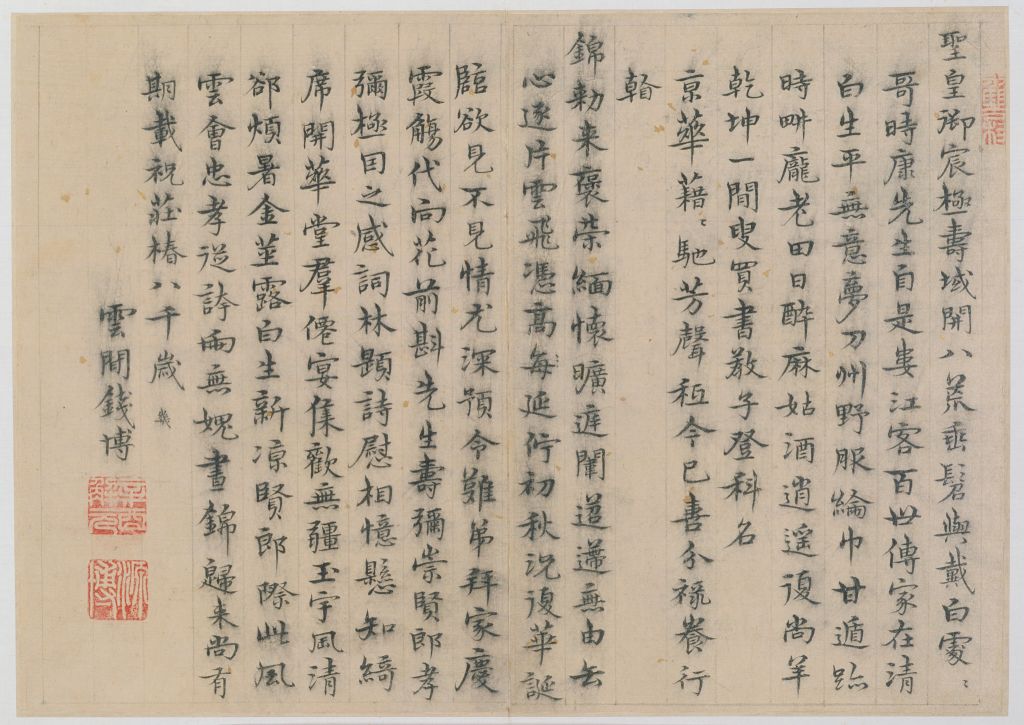 聖皇御宸極壽域開八荒垂髫與戴白處〻
哥時康先生自是婁江客百世傳家在清
白生平無意夢刀州野服綸巾甘遁跡
時畊龐老田日醉麻姑酒逍遙復尚羊
乾坤一間叟買書教子登科名
京華藉〻馳芳聲秪今已喜分祿養行
看
錦勑来褒荣緬懷曠遅闈迢遰無由去
心逐片雲飛憑髙每延佇初秋況復華誕
臨欲見不見情尤深預令難弟拜家慶
霞觴代向花前斟先生壽彌崇賢郎孝
彌極因之感詞林題詩慰相憶懸知綺
席開華堂羣僊宴集歡無疆玉宇風清
郤煩暑金莖露白生新凉賢郎際此風
雲會忠孝從誇兩無媿晝錦歸来尚有
期載祝莊椿八千歲
雲間錢博